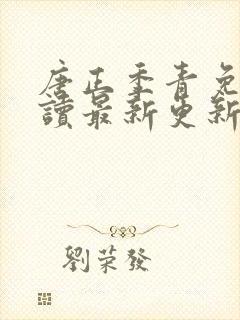 唐正季青免
讀最新更新
劉荣發